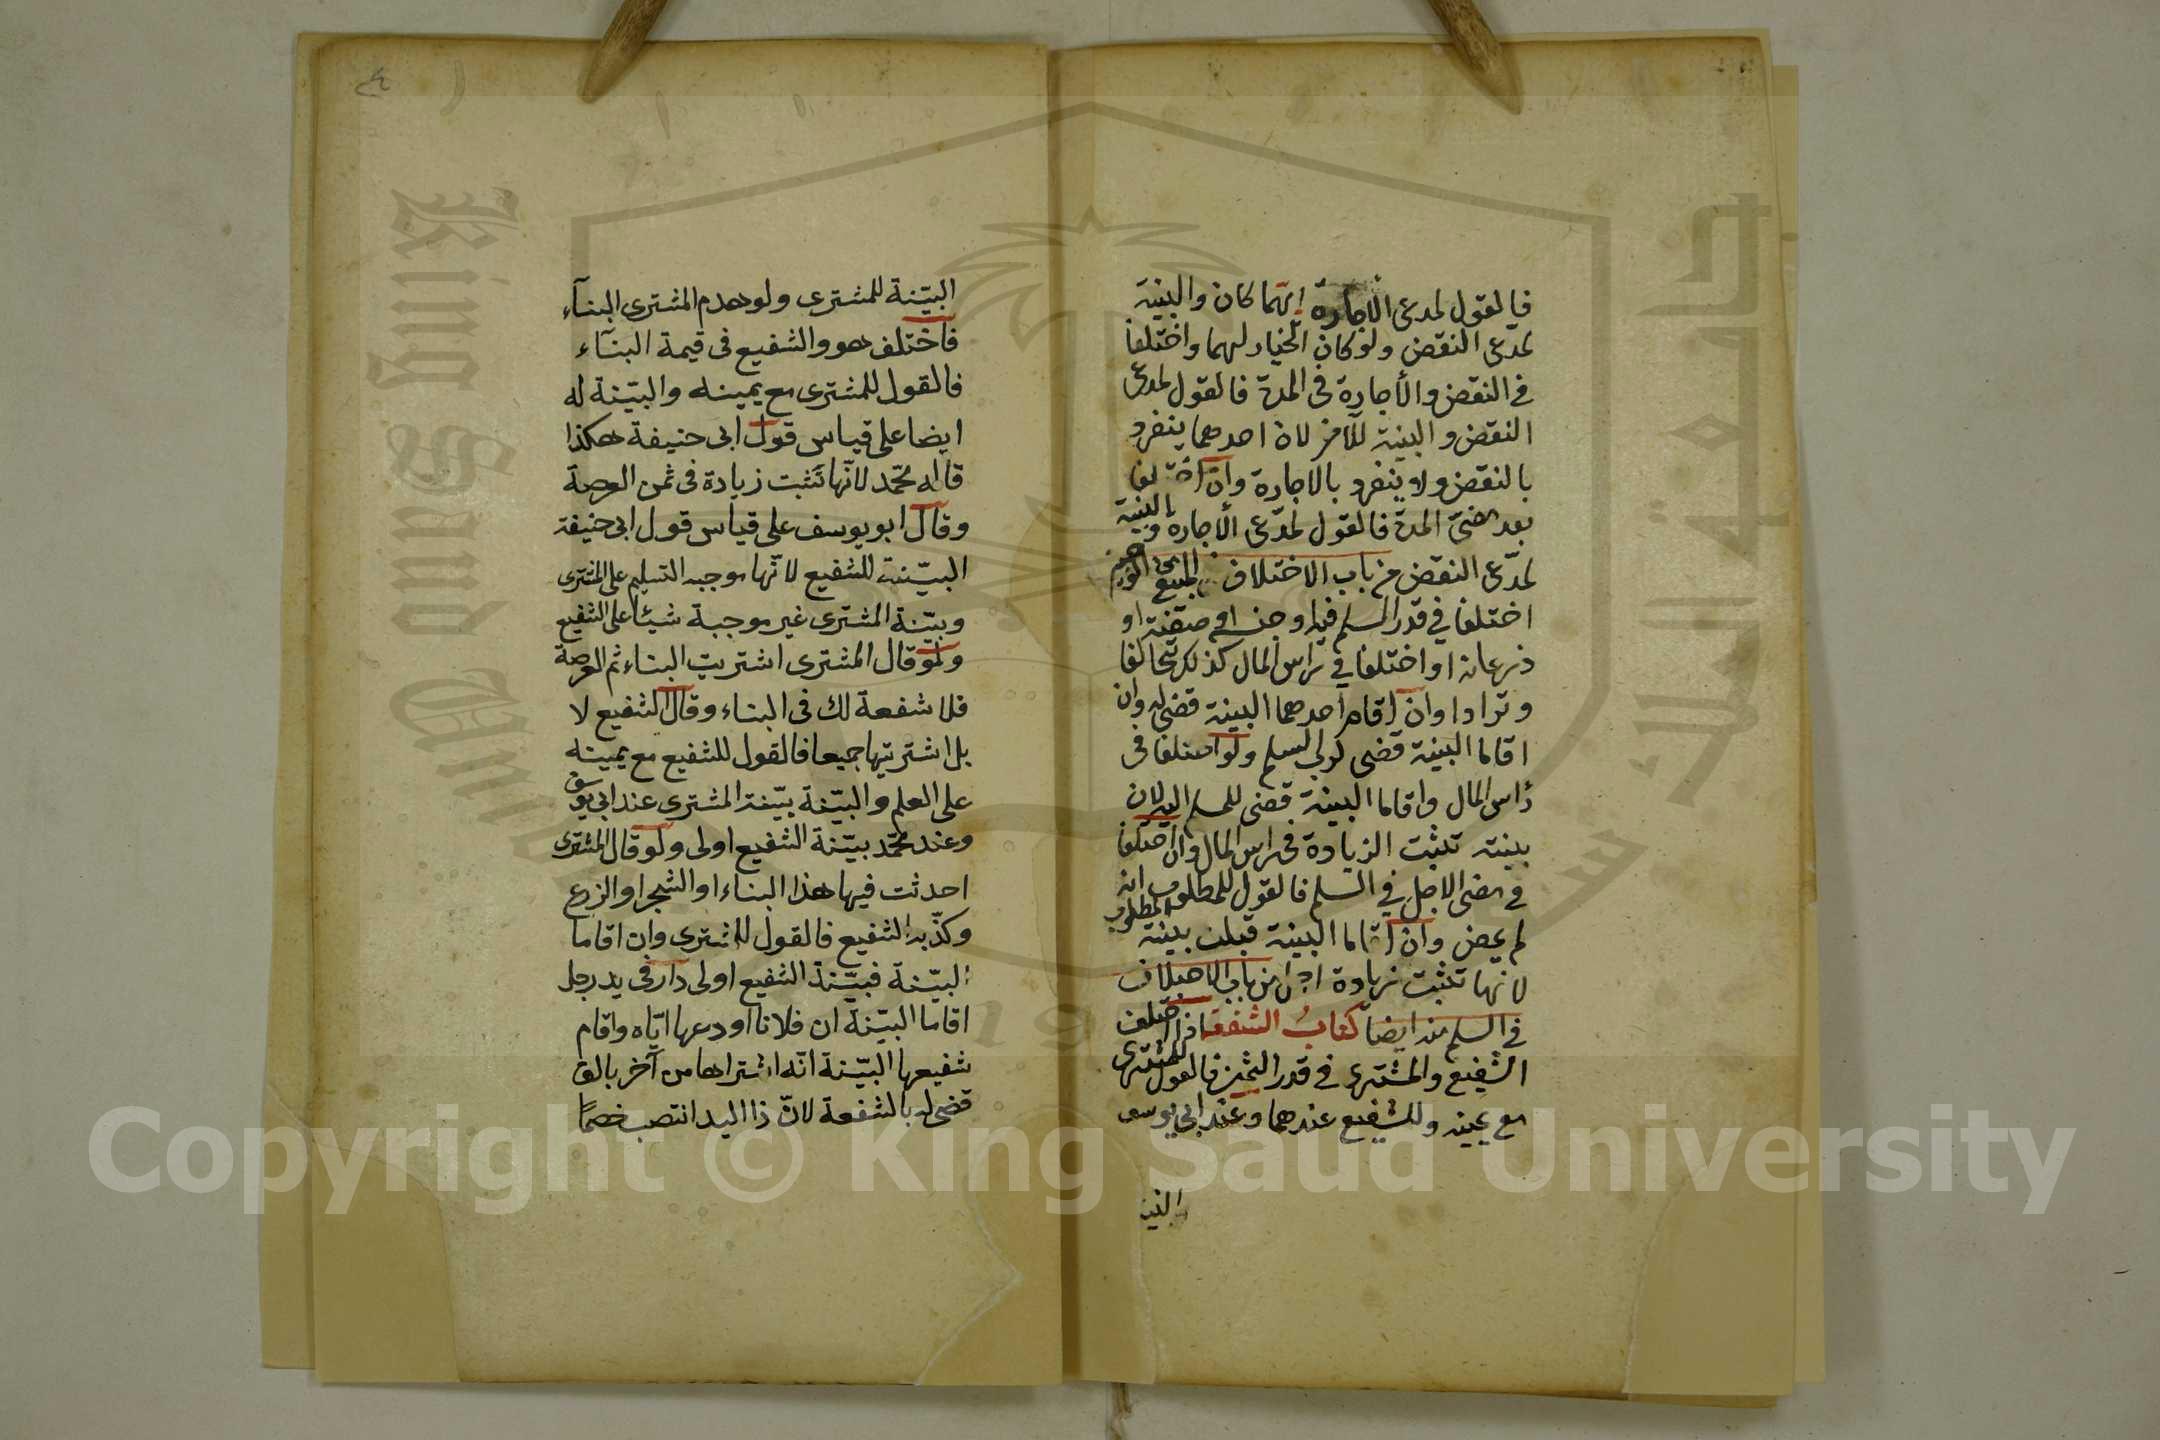 فالقول لمدعى الاجازة ايهما كان والبينة
لمدعى النقض ولو كان الخيار لهما واختلفا
فى النقض والاجازة فى المدة فالقول لمدعى
النقض والبينة للآخر لان احدهما ينفرد
بالنقض ولا ينفرد بالاجازة وان اختلفا
بعد مضى المدة فالقول لمدعى الاجازة والبينة
لمدعى النقض من باب الاختلاف المبيع
اختلفا فى قدر المسلم فيه او جنسه او صفته او
ذرعانه او اختلفا فى راس المال كذلك تحالفا
وترادا وان اقام احدهما البينة قضى له وان
اقاما البينة قضى لرب السلم ولو اختلفا فى
راس المال واقاما البينة قضى للمسلم اليه لان
بينته تثبت الزيادة فى راس المال وان اختلفا
فى مضى الاجل فى السلم فالقول للمطلوب انه
لم يمض وان اقاما البينة قبلت بينة المطلوب
لانها تثبت زيادة اجل من باب الاختلاف
فى السلم منه ايضا كتاب الشفعة اذا اختلف
الشفيع والمشترى فى قدر الثمن فالقول للمشترى
مع يمينه وللشفيع عندهما وعند ابى يوسف
البينة
البيّنة للمشترى ولو هدم المشترى البناء
فاختلف هو والشفيع فى قيمة البناء
فالقول للمشترى مع يمينه والبيّنة له
ايضا على قياس قول ابى حنيفة هكذا
قاله محمّد لانّها تثبت زيادة فى ثمن العرصة
وقال ابو يوسف على قياس قول ابى حنيفة
البيّنة للشفيع لانّها موجبه التسليم على المشترى
وبيّنة المشترى غير موجبة شيئا على الشفيع
ولو قال المشترى اشتريت البناء ثم العرصة
فلا شفعة لك فى البناء وقال الشفيع لا
بل اشتريتها جميعا فالقول للشفيع مع يمينه
على العلم والبيّنة بيّنة المشترى عند ابى يوسف
وعند محمّد بيّنة الشفيع اولى ولو قال المشترى
احدثت فيها هذا البناء او الشجر او الزرع
وكذّبه الشفيع فالقول للمشترى وان اقاما
البيّنة فبيّنة الشفيع اولى دار فى يد رجل
اقاما البيّنة ان فلانا اودعها ايّاه واقام
شفيعها البيّنة انّه اشتراها من آخر بالف
قضى له بالشفعة لانّ ذا اليد انتصب خصمًا
Copyright © King Saud University
King Saud University
جامعة الملك سعود